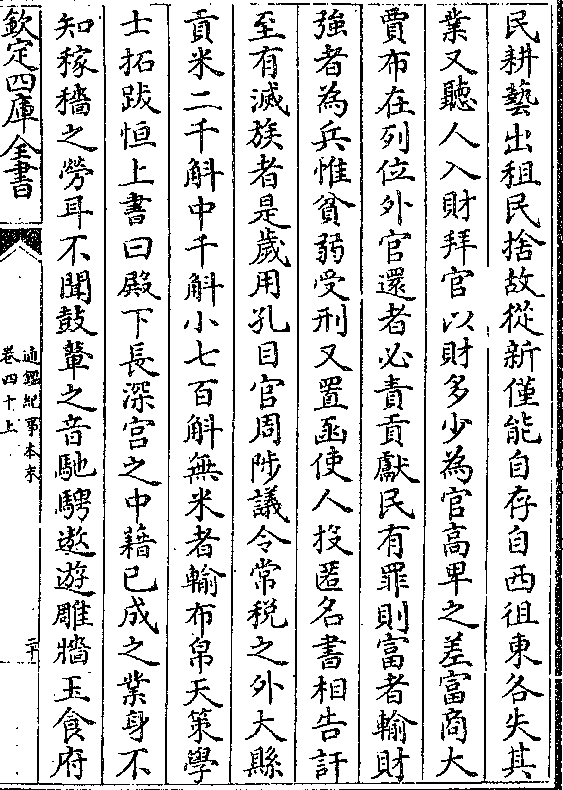 民耕藝出租民捨故從新僅能自存自西徂東各失其
業又聽人入財拜官以財多少為官高卑之差富商大
賈布在列位外官還者必責貢獻民有罪則富者輸財
強者為兵惟貧弱受刑又置函使人投匿名書相告訐
至有滅族者是歲用孔目官周陟議令常税之外大縣
貢米二千斛中千斛小七百斛無米者輸布帛天策學
士拓跋恒上書曰殿下長深宫之中藉已成之業身不
知稼穡之勞耳不聞鼓鼙之音馳騁遨遊雕牆玉食府
欽定四庫全書
通鑑紀事本末
卷四十上
二十